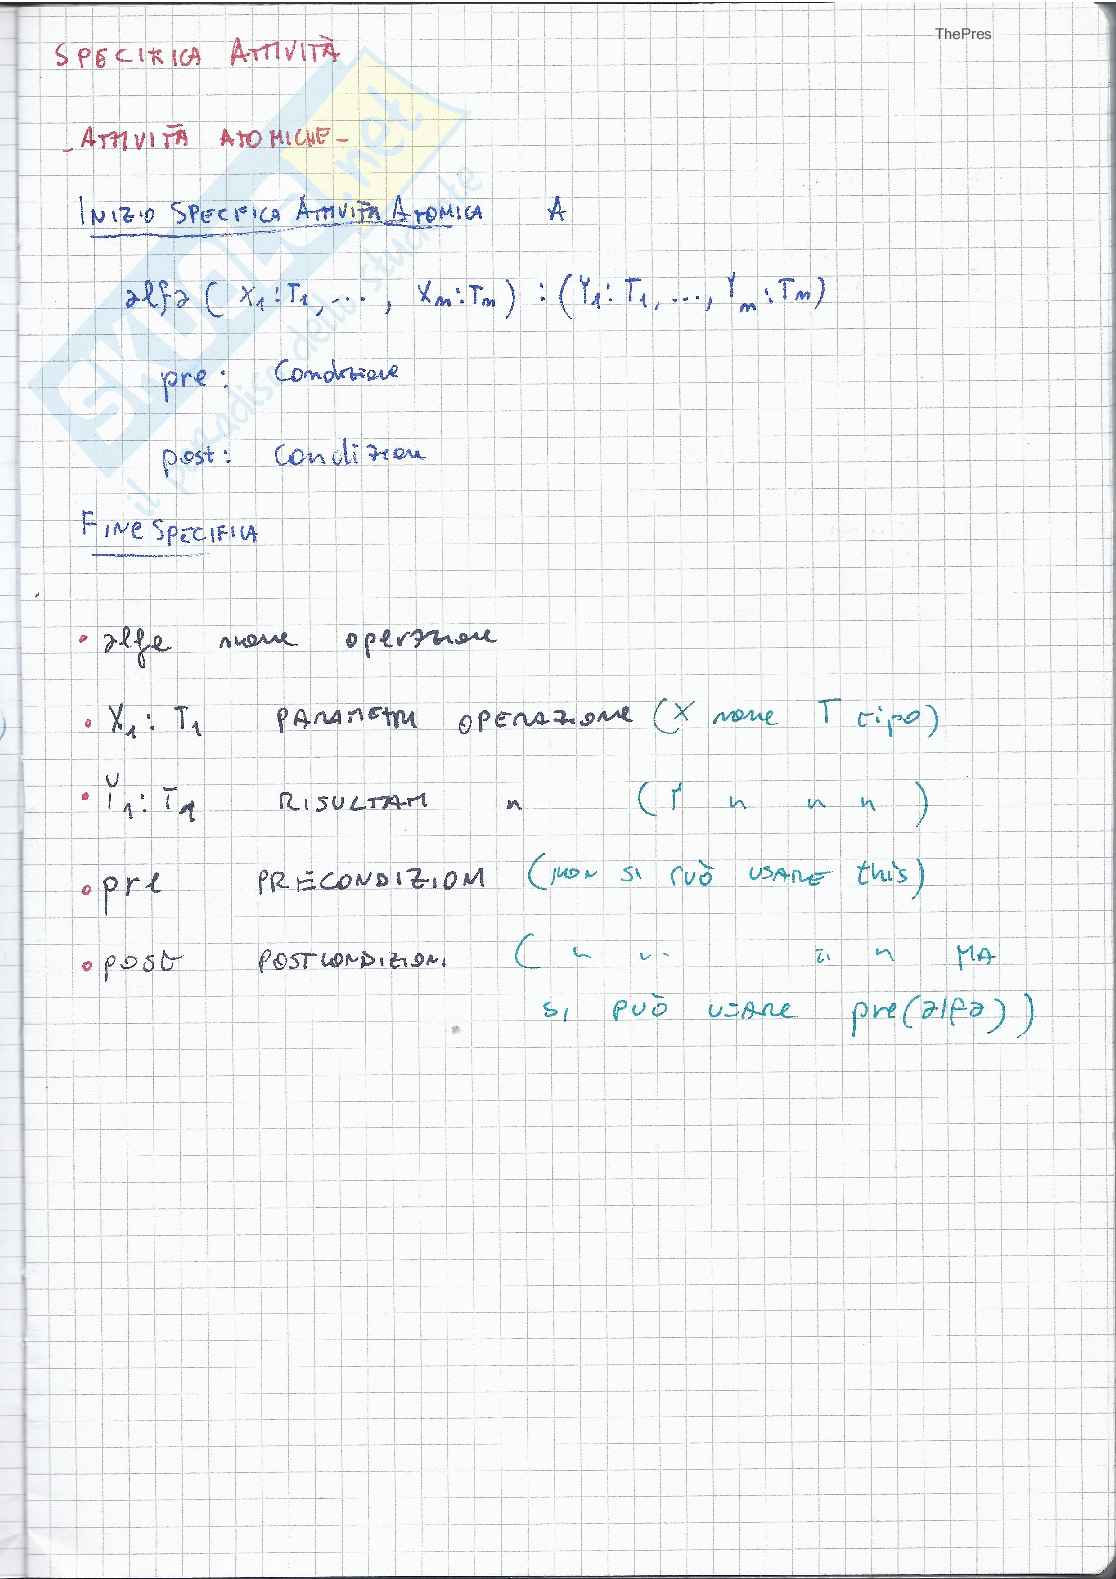 ThePres
SPECIFICA ATTIVITÀ
- ATTIVITÀ ATOMICHE -
INIZIO SPECIFICA ATTIVITÀ ATOMICA A
alfa ( X1:T1, ..., Xm:Tm ) : (Y1:T1, ..., Ym:Tm)
pre: Condizione
post: Condizione
FINE SPECIFICA
• alfa nome operazione
• X1: T1 PARAMETRI OPERAZIONE (X nome T tipo)
• Y1: T1 RISULTATI " (Y " " ")
• pre PRECONDIZIONI (NON SI PUÒ USARE this)
• post POSTCONDIZIONI ( " " " " MA
SI PUÒ USARE pre(alfa))
SKUOLA.net
il paradiso dello studente